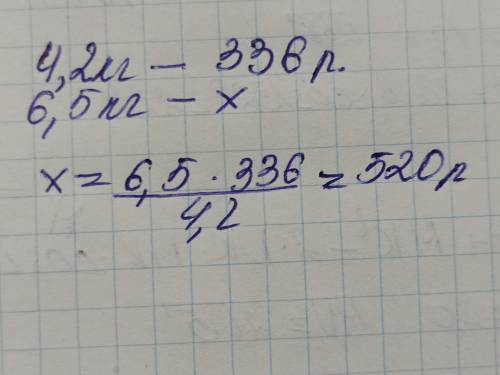 4,2кг — 336 р.
6,5кг — х
х = 6,5 · 336 / 4,2 = 520 р